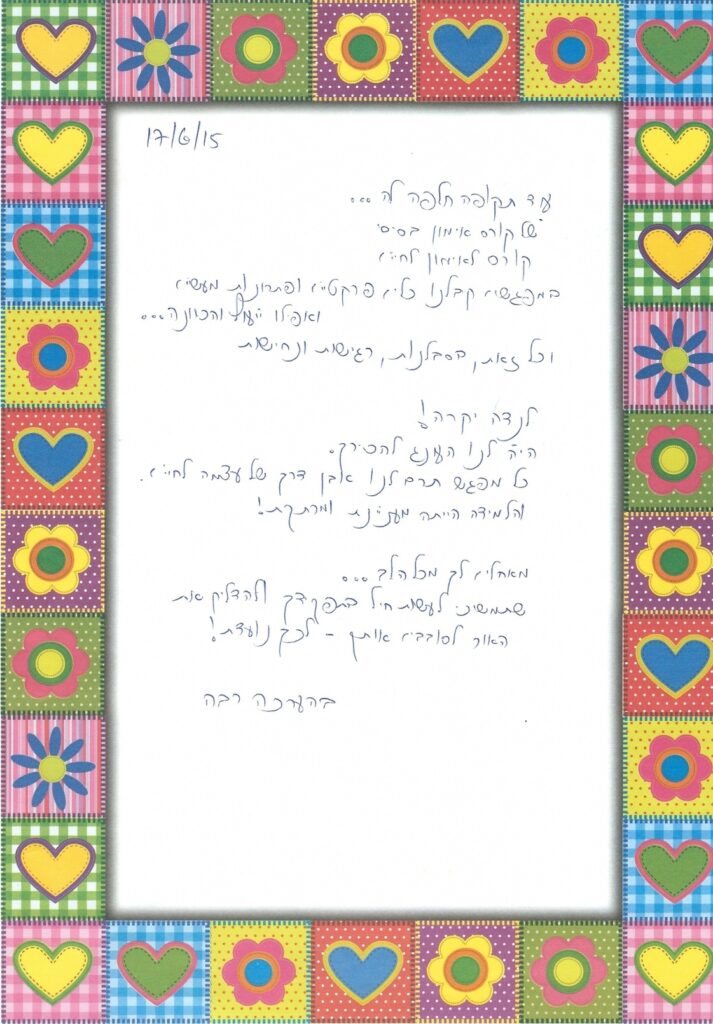 17/6/15
עוד תקופה חלפה לה...
של קורס אימון בסיסי
קורס לאימון לחיים
במפגשים קבלנו כלים פרקטיים ופתרונות מעשיים
ואפילו ייעוץ והכוונה...
וכל זאת, בסבלנות, רגישות ונחישות
לנדה יקרה!
היה לנו העונג להכירך.
כל מפגש תרם לנו אבן דרך של עצמה לחיים.
והלמידה הייתה מעניינת ומרתקת!
מאחלים לך מכל הלב...
שתמשיכי לעשות חיל בתפקידך ולהדליק את
האור לסובבים אותך - לכך נועדת!
בהערכה רבה